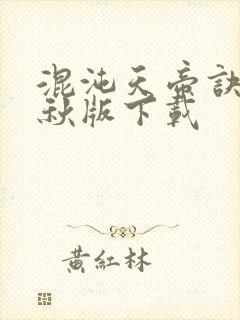 混沌天帝訣
秋版下載
黃紅林